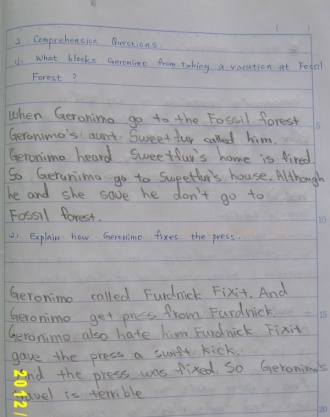 2. Comprehension Questions.
Q1. What blocks Geronimo from taking a vacation at Fossil
Forest ?
When Geronimo go to the Fossil forest
Geronimo's aunt Sweet fur called him.
Geronimo heard Sweetfur's home is fired.
So Geronimo go to Sweetfur's house. Although
he and she save he don't go to
Fossil forest.
Q2. Explain how Geronimo fixes the press.
Geronimo called Furdnick Fixit. And
Geronimo get press from Furdnick.
Geronimo also hate him. Furdnick Fixit
gave the press a swift kick.
And the press was fixed. So Geronimo's
travel is terrible
5
10
15
20
2012/